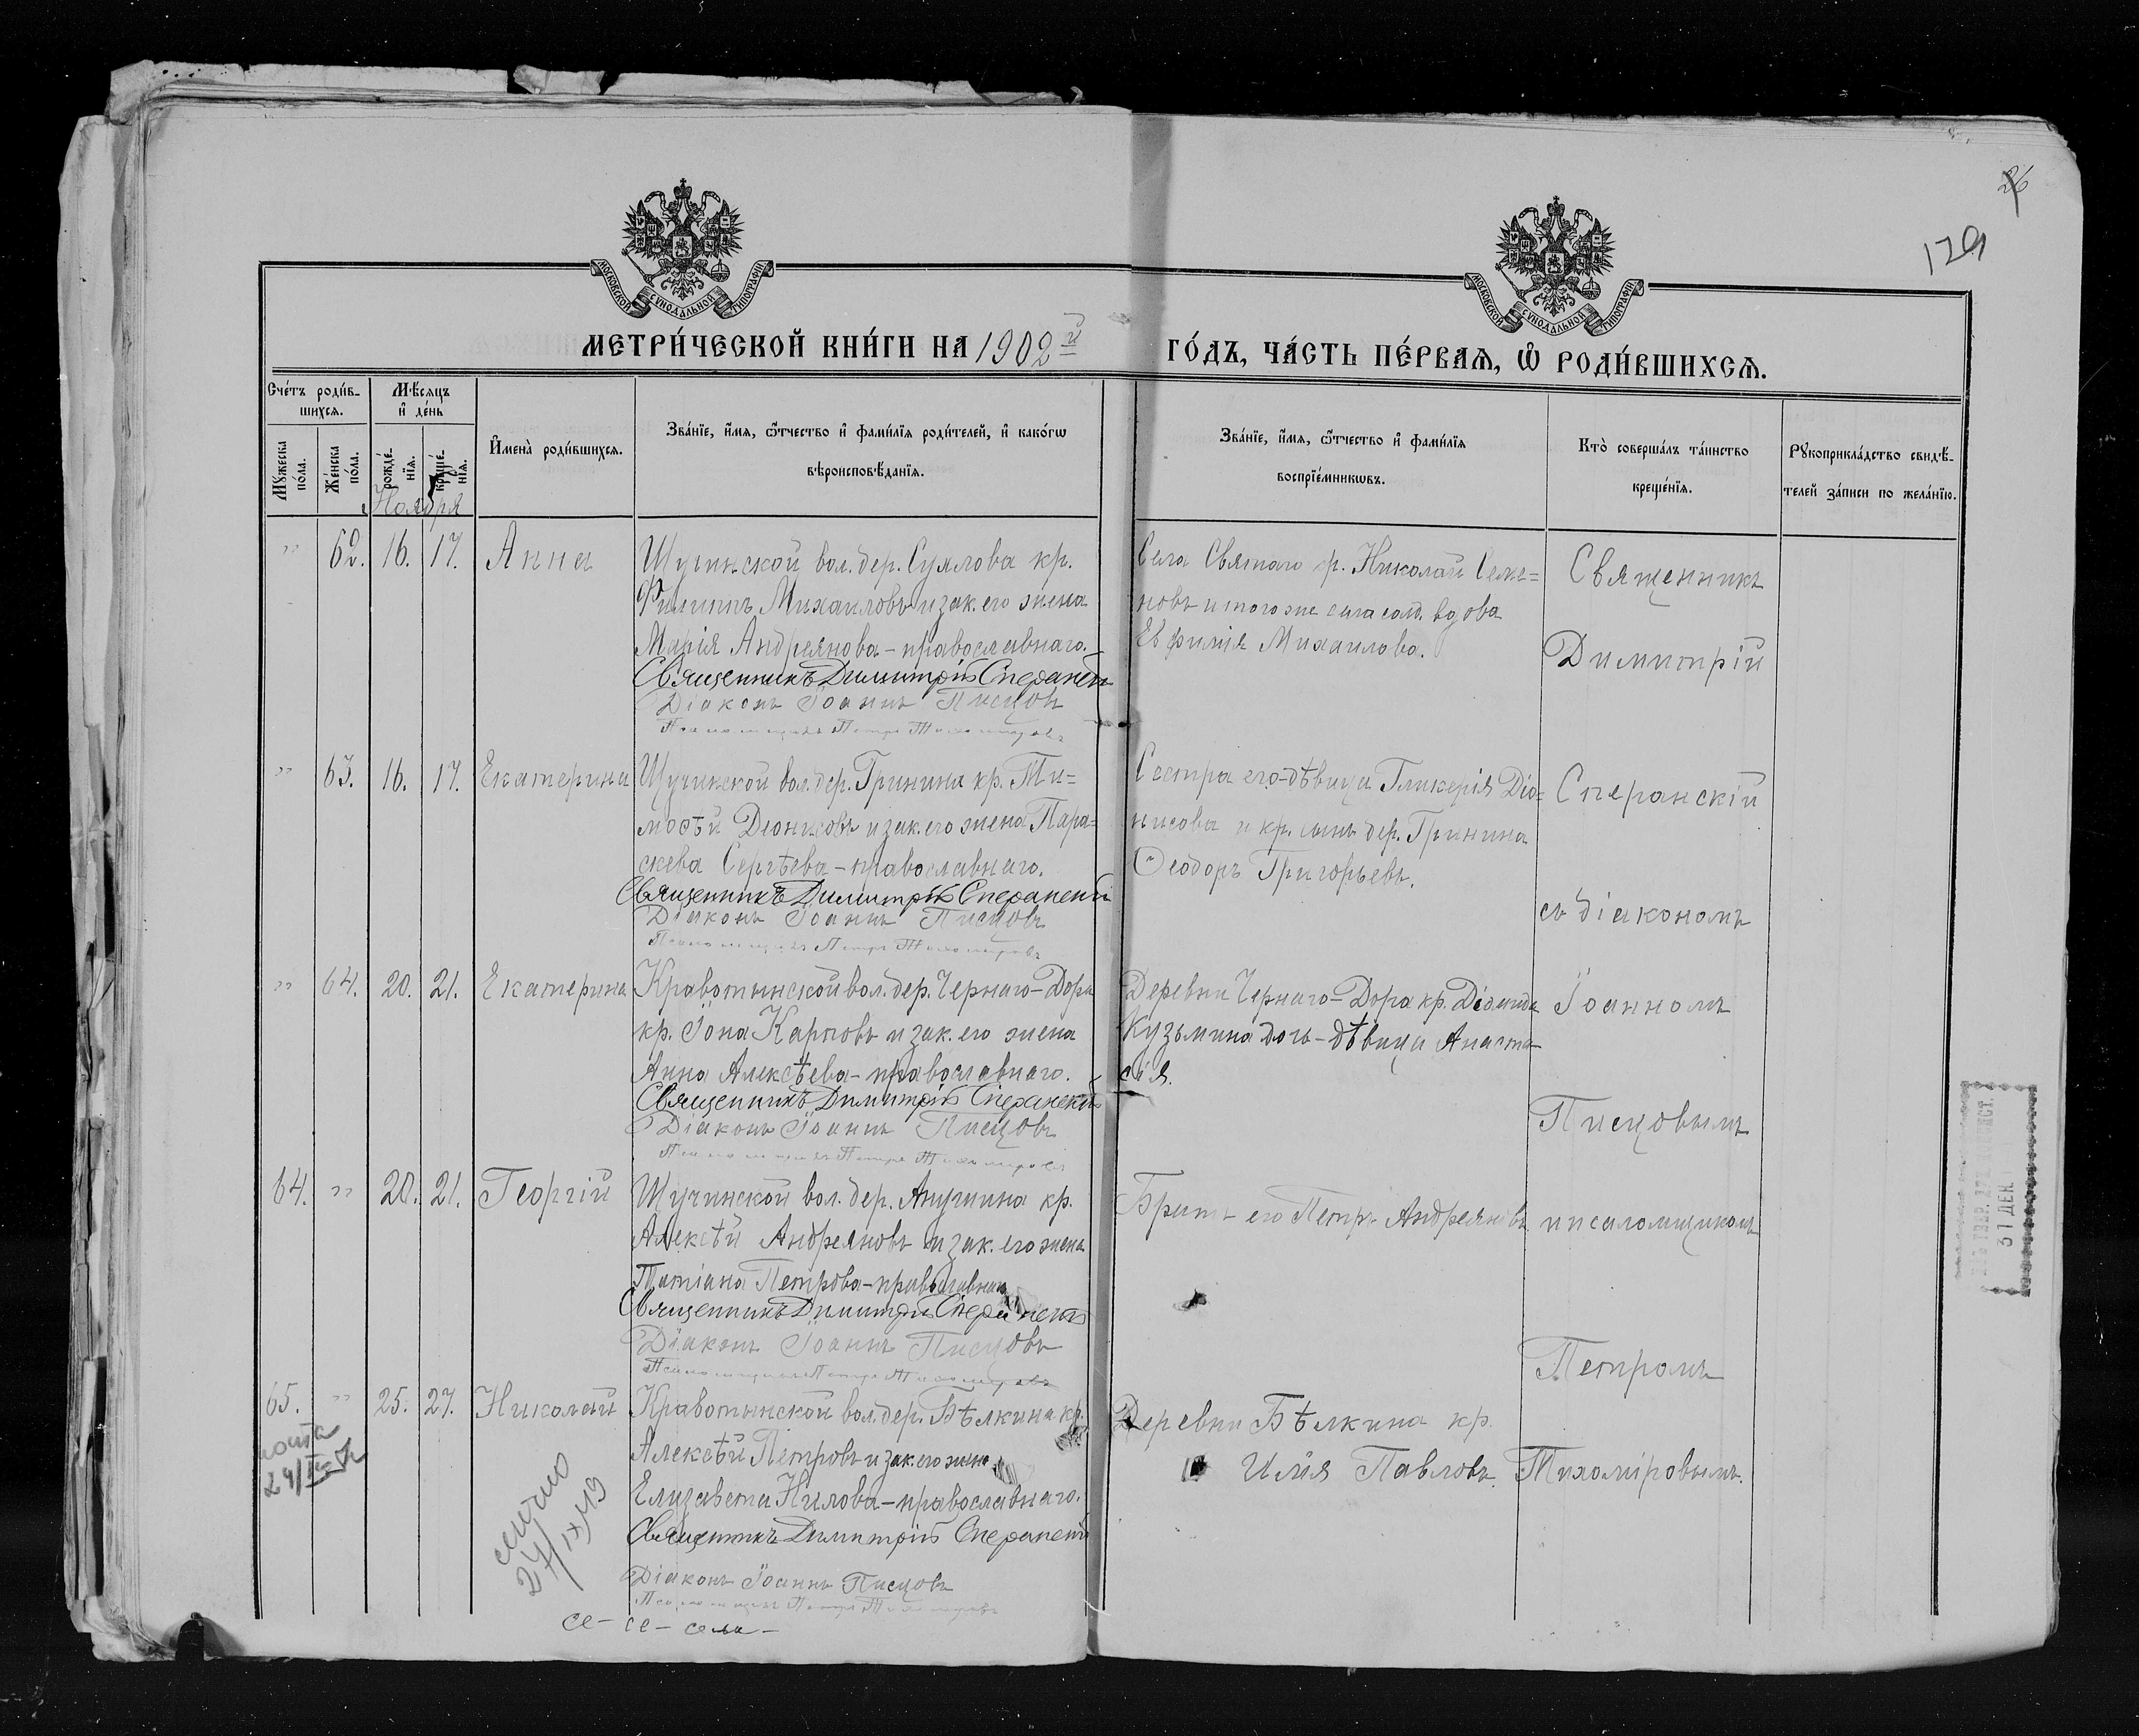 26
129
МОСКОВСКОЙ СѴНОДАЛЬНОЙ ТИПОГРАФІИ
МОСКОВСКОЙ СѴНОДАЛЬНОЙ ТИПОГРАФІИ
МЕТРИ́ЧЕСКОЙ КНИ́ГИ НА 1902й ГО́ДЪ, ЧА́СТЬ ПЕ́РВАѦ, Ѡ҆ РОДИ́ВШИХСѦ.
Сче́тъ роди́в-
шихсѧ.
Мѣ́сѧцъ
и҆ де́нь
Мꙋ́жеска по́ла.
Же́нска по́ла.
рожде́-
нїѧ.
креще́-
нїѧ.
И҆мена̀ роди́вшихсѧ.
Зва́нїе, и҆́мѧ, ѻ҆́тчество и҆ фами́лїѧ роди́телей, и҆ како́гѡ
вѣроисповѣ́данїѧ.
Зва́нїе, и҆́мѧ, ѻ҆́тчество и҆ фами́лїѧ
воспрїе́мникѡвъ.
Кто̀ соверша́лъ та́инство
креще́нїѧ.
Рꙋкоприкла́дство свидѣ́-
телей за́писи по жела́нїю.
Ноября
" 62. 16. 17. Анна
Щучинской вол. дер. Суялова кр.
Филиппъ Михаиловъ и зак. его жена
Марія Андреянова - православнаго.
Священникъ Димитрій Сперанскій
Діаконъ Іоаннъ Писцовъ
Псаломщикъ Петръ Тихомировъ
Села Святаго кр. Николай Семе=
новъ и того же села солд. вдова
Евфимія Михаилова.
Священникъ
Димитрій
" 63. 16. 17. Екатерина
Щучинской вол. дер. Гринина кр. Ти=
мофѣй Діонисовъ и зак. его жена Пара=
скева Сергѣева - православнаго.
Священникъ Димитрій Сперанскій
Діаконъ Іоаннъ Писцовъ
Псаломщикъ Петръ Тихомировъ
Сестра его - дѣвица Гликерія Діо=
нисова и кр. сынъ дер. Гринина
Ѳеодоръ Григорьевъ.
Сперанскій
съ діакономъ
" 64. 20. 21. Екатерина
Кравотынской вол. дер. Чернаго-Дора
кр. Іона Карповъ и зак. его жена
Анна Алексѣева - православнаго.
Священникъ Димитрій Сперанскій
Діаконъ Іоаннъ Писцовъ
Псаломщикъ Петръ Тихомировъ
Деревни Чернаго-Дора кр. Діомида
Кузьмина дочь - дѣвица Анаста-
сія.
Іоанномъ
Писцовымъ
64. " 20. 21. Георгій
Щучинской вол. дер. Анушина кр.
Алексѣй Андреяновъ и зак. его жена
Татіана Петрова - православнаго
Священникъ Димитрій Сперанскій
Діаконъ Іоаннъ Писцовъ
Псаломщикъ Петръ Тихомировъ
Братъ его Петръ Андреяновъ
и псаломщикомъ
Петромъ
65. " 25. 27. Николай
Кравотынской вол. дер. Бѣлкина кр.
Алексѣй Петровъ и зак. его жена
Елизавета Нилова - православнаго.
Священникъ Димитрій Сперанскій
Діаконъ Іоаннъ Писцовъ
Псаломщикъ Петръ Тихомировъ
Деревни Бѣлкина кр.
Илія Павловъ.
Тихоміровымъ.
24/IX
24/IX 49
се - се - села -
31 ДЕК.